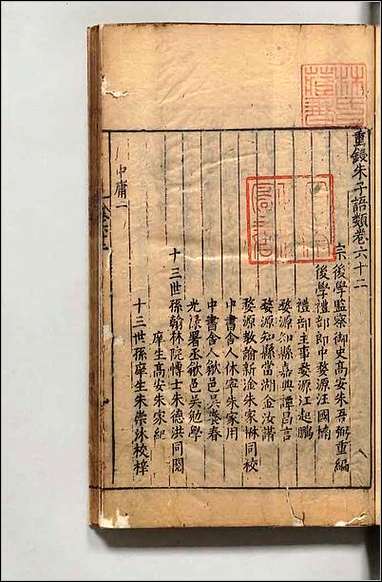 重鋟朱子語類卷六十二
宗後學監察御史高安朱吾弼重編
後學禮部郎中婺源汪國楠
禮部主事婺源江起鵬
婺源知縣嘉興譚昌言
婺源知縣當湖金汝諧
婺源教諭新淦朱家楙同校
中書舍人休寧朱家用
中書舍人歙邑吳養春
光祿署丞歙邑吳勉學
十三世孫翰林院博士朱德洪同閱
庠生高安朱家紀
十三世孫庠生朱崇沐校梓
中庸二